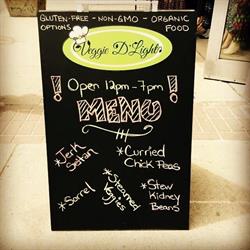 GLUTEN-FREE - NON-GMO - ORGANIC
OPTIONS FOOD
Veggie D'Lights
! Open 12pm - 7pm !
MENU
*Jerk
Seitan
*Curried
Chick Peas
*Sorrel
*Steamed
Veggies
*Stew
Kidney
Beans